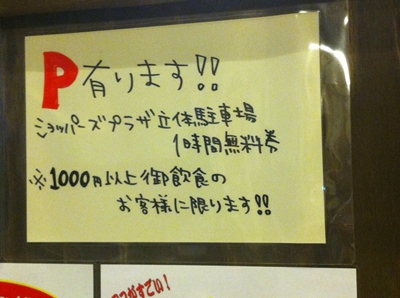 P 有ります!!
ショッパーズプラザ立体駐車場
1時間無料券
※1000円以上御飲食の
お客様に限ります!!
がすごい!